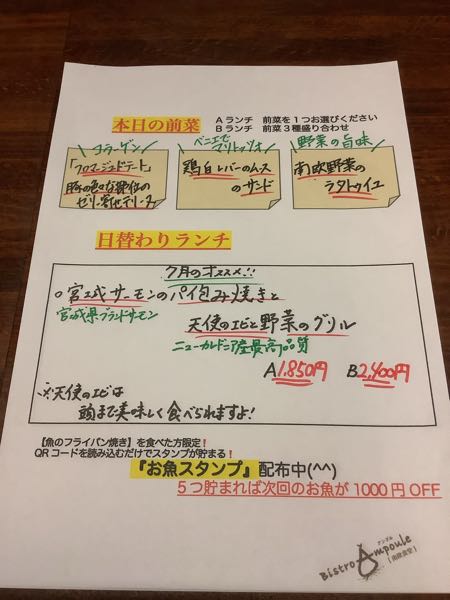 本日の前菜
Aランチ 前菜を1つお選びください
Bランチ 前菜3種盛り合わせ
コラーゲン
「フロマージュドテート」
豚の色々な部位の
ゼリー寄せテリーヌ
ベニエで
マリトッツォ
鶏白レバーのムース
のサンド
野菜の旨味
南欧野菜の
ラタトゥイユ
日替わりランチ
7月のオススメ!!
○宮城サーモンのパイ包み焼きと
宮城県ブランドサーモン
天使のエビと野菜のグリル
ニューカレドニア産最高品質
A1,850円 B2,400円
※天使のエビは
頭まで美味しく食べられますよ!
【魚のフライパン焼き】を食べた方限定!
QRコードを読み込むだけでスタンプが貯まる!
『お魚スタンプ』配布中(^^)
5つ貯まれば次回のお魚が1000円OFF
アンプル
Bistro Ampoule
[南欧食堂]